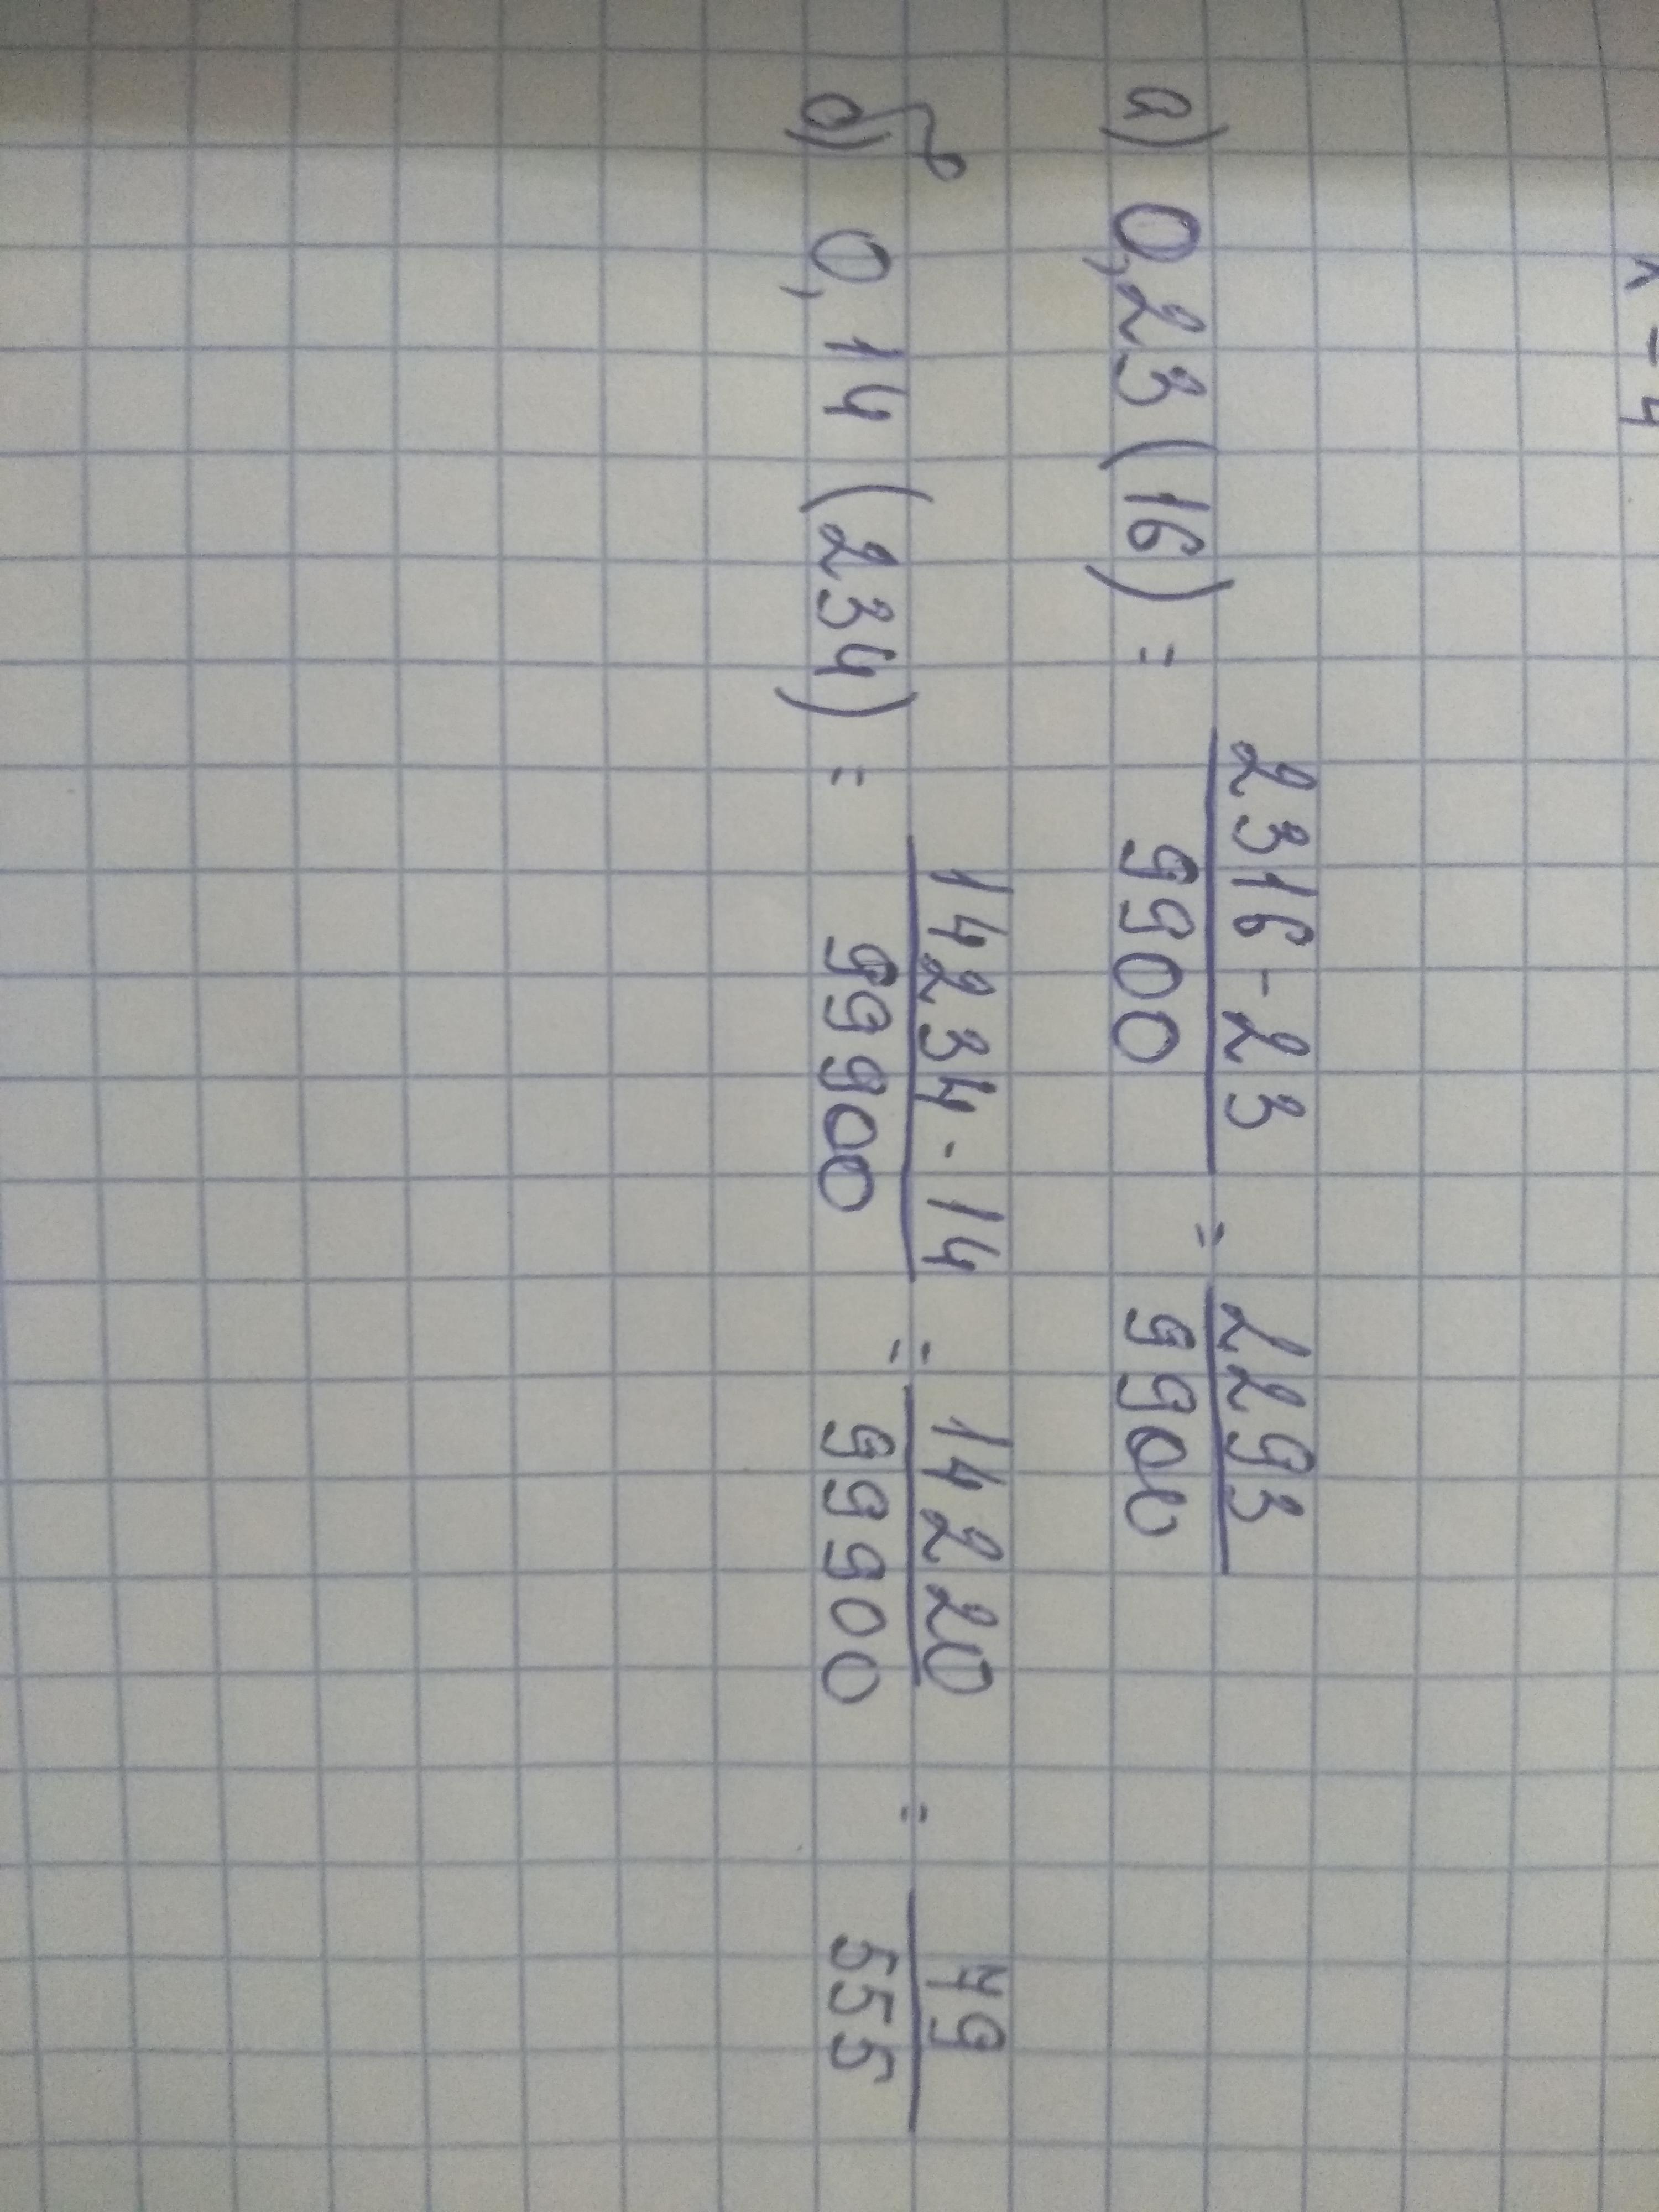 а) 0,23(16) = \frac{2316-23}{9900} = \frac{2293}{9900}
б) 0,14(234) = \frac{14234-14}{99900} = \frac{14220}{99900} = \frac{79}{555}